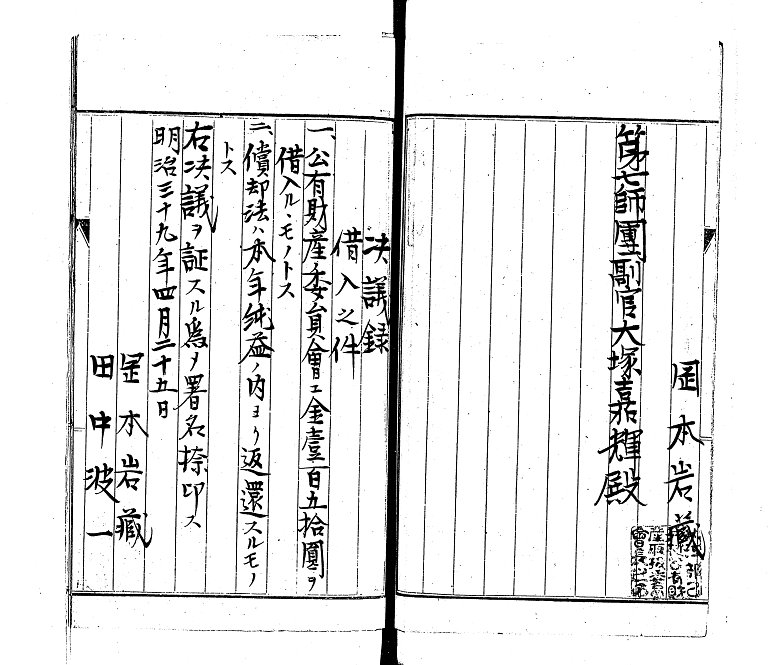 岡本岩藏
第七師團副官大塚嘉輝殿
決議録
借入之件
一、公有財産委員會ヱ金壹百五拾圓ヲ
借入ルヽモノトス
二、償却法ハ本年純益ノ内ヨリ返還スルモノ
トス
右決議ヲ証スル爲メ署名捺印ス
明治三十九年四月二十五日
岡本岩藏
田中波一